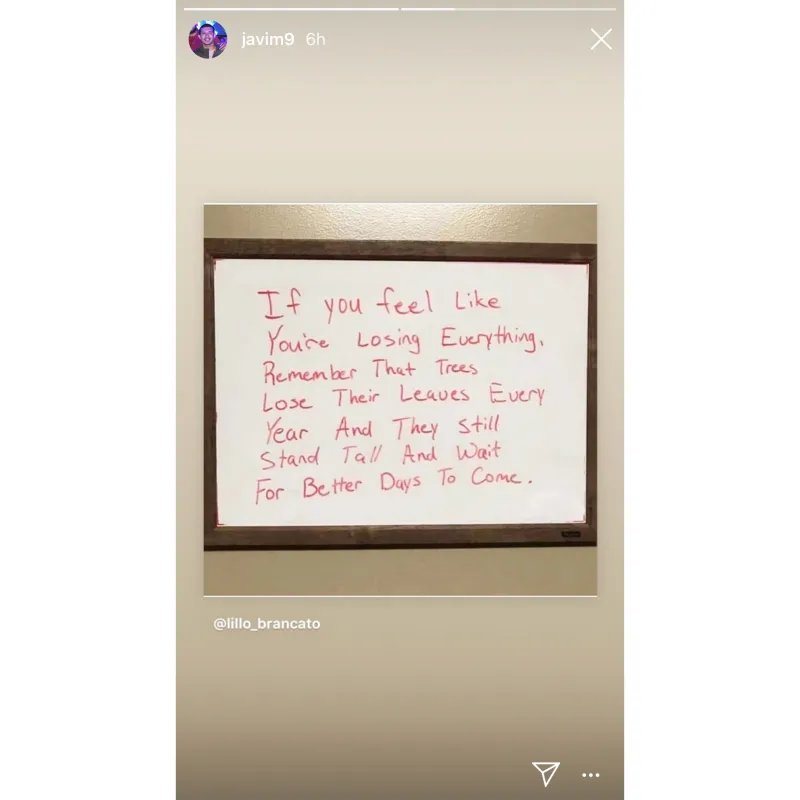 javim9 6h
If you feel Like
You're Losing Everything,
Remember That Trees
Lose Their Leaves Every
Year And They Still
Stand Tall And Wait
For Better Days To Come.
@lillo_brancato